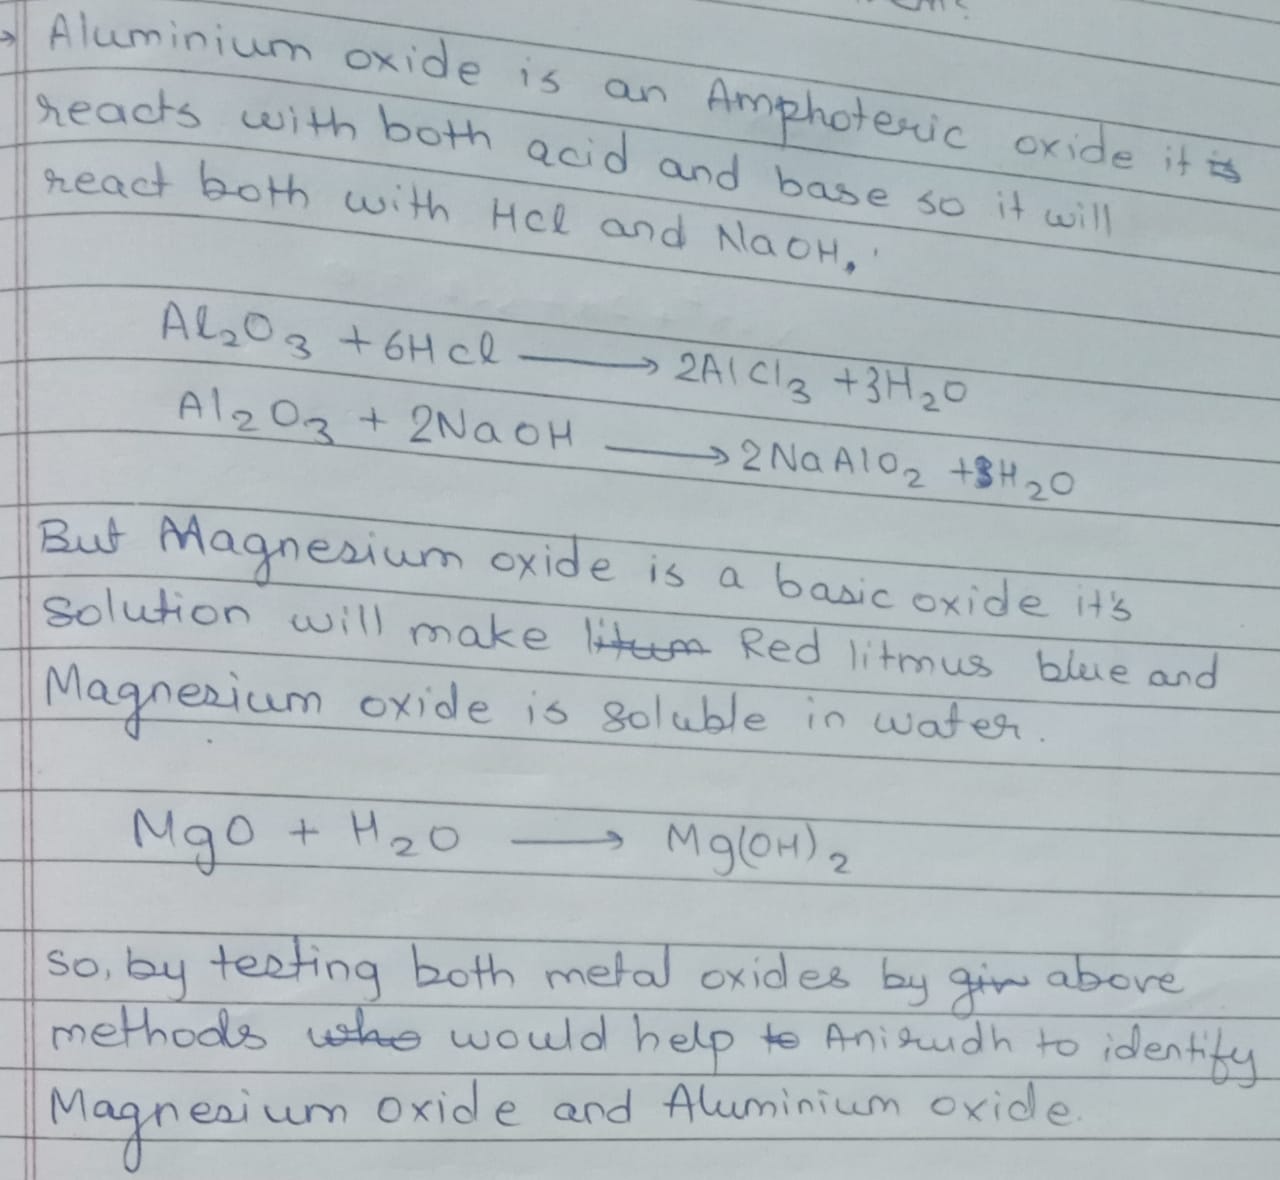 → Aluminium oxide is an Amphoteric oxide it is
reacts with both acid and base so it will
react both with Hcl and NaOH,
Al₂O₃ + 6Hcl ⟶ 2AlCl₃ +3H₂O
Al₂O₃ + 2NaOH ⟶ 2NaAlO₂ + H₂O
But Magnesium oxide is a basic oxide it's
solution will make Red litmus blue and
Magnesium oxide is soluble in water.
MgO + H₂O ⟶ Mg(OH)₂
so, by testing both metal oxides by above
methods would help to Anirudh to identify
Magnesium oxide and Aluminium oxide.